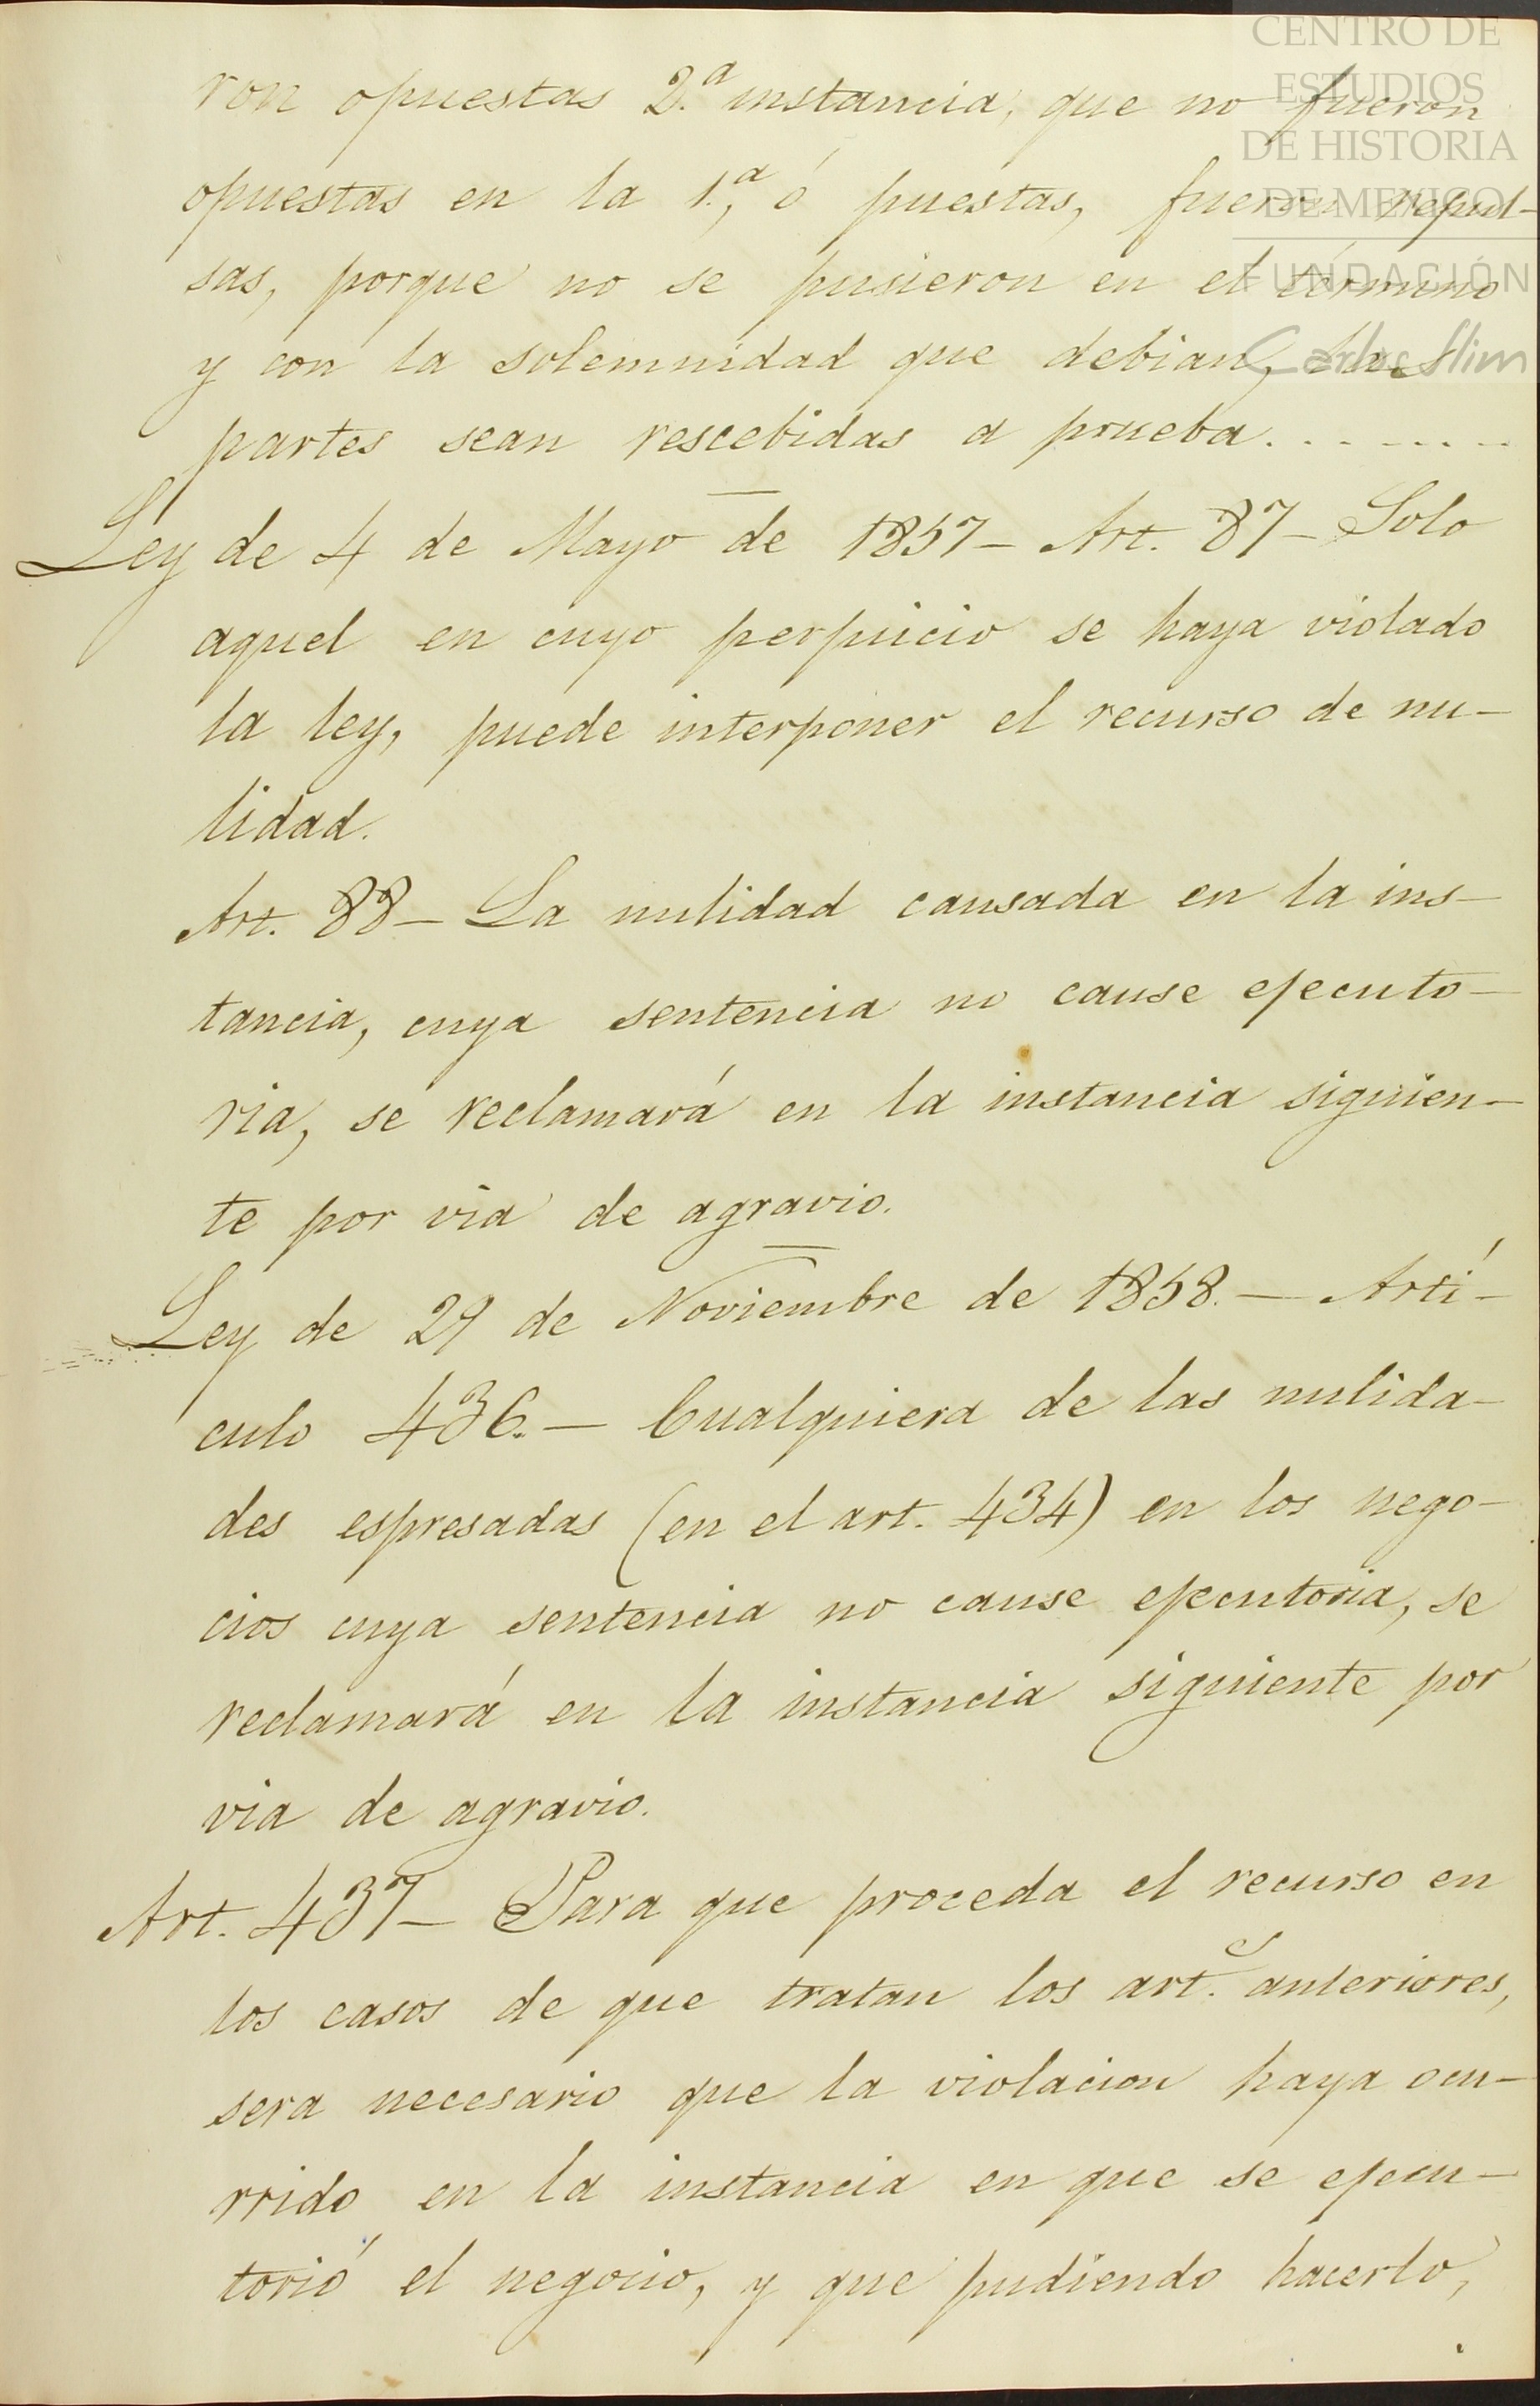 CENTRO DE
ESTUDIOS
DE HISTORIA
DE MEXICO
FUNDACIÓN
Carlos Slim
ron opuestas 2.ª instancia, que no fueron
opuestas en la 1.ª, ó puestas, fueron repul-
sas, porque no se pusieron en el término
y con la solemnidad que debian, las
partes sean rescebidas a prueba. . . . . . . .
Ley de 4 de Mayo de 1857 – Art. 87 – Solo
aquel en cuyo perjuicio se haya violado
la ley, puede interponer el recurso de nu-
lidad.
Art. 88 – La nulidad causada en la ins-
tancia, cuya sentencia no cause ejecuto-
ria, se reclamará en la instancia siguien-
te por via de agravio.
Ley de 29 de Noviembre de 1858. – Artí-
culo 436. – Cualquiera de las nulida-
des espresadas (en el art. 434) en los nego-
cios cuya sentencia no cause ejecutoria, se
reclamará en la instancia siguiente por
via de agravio.
Art. 437 – Para que proceda el recurso en
los casos de que tratan los art.s anteriores,
sera necesario que la violacion haya ocu-
rrido en la instancia en que se ejecu-
torió el negocio, y que pudiendo hacerlo,